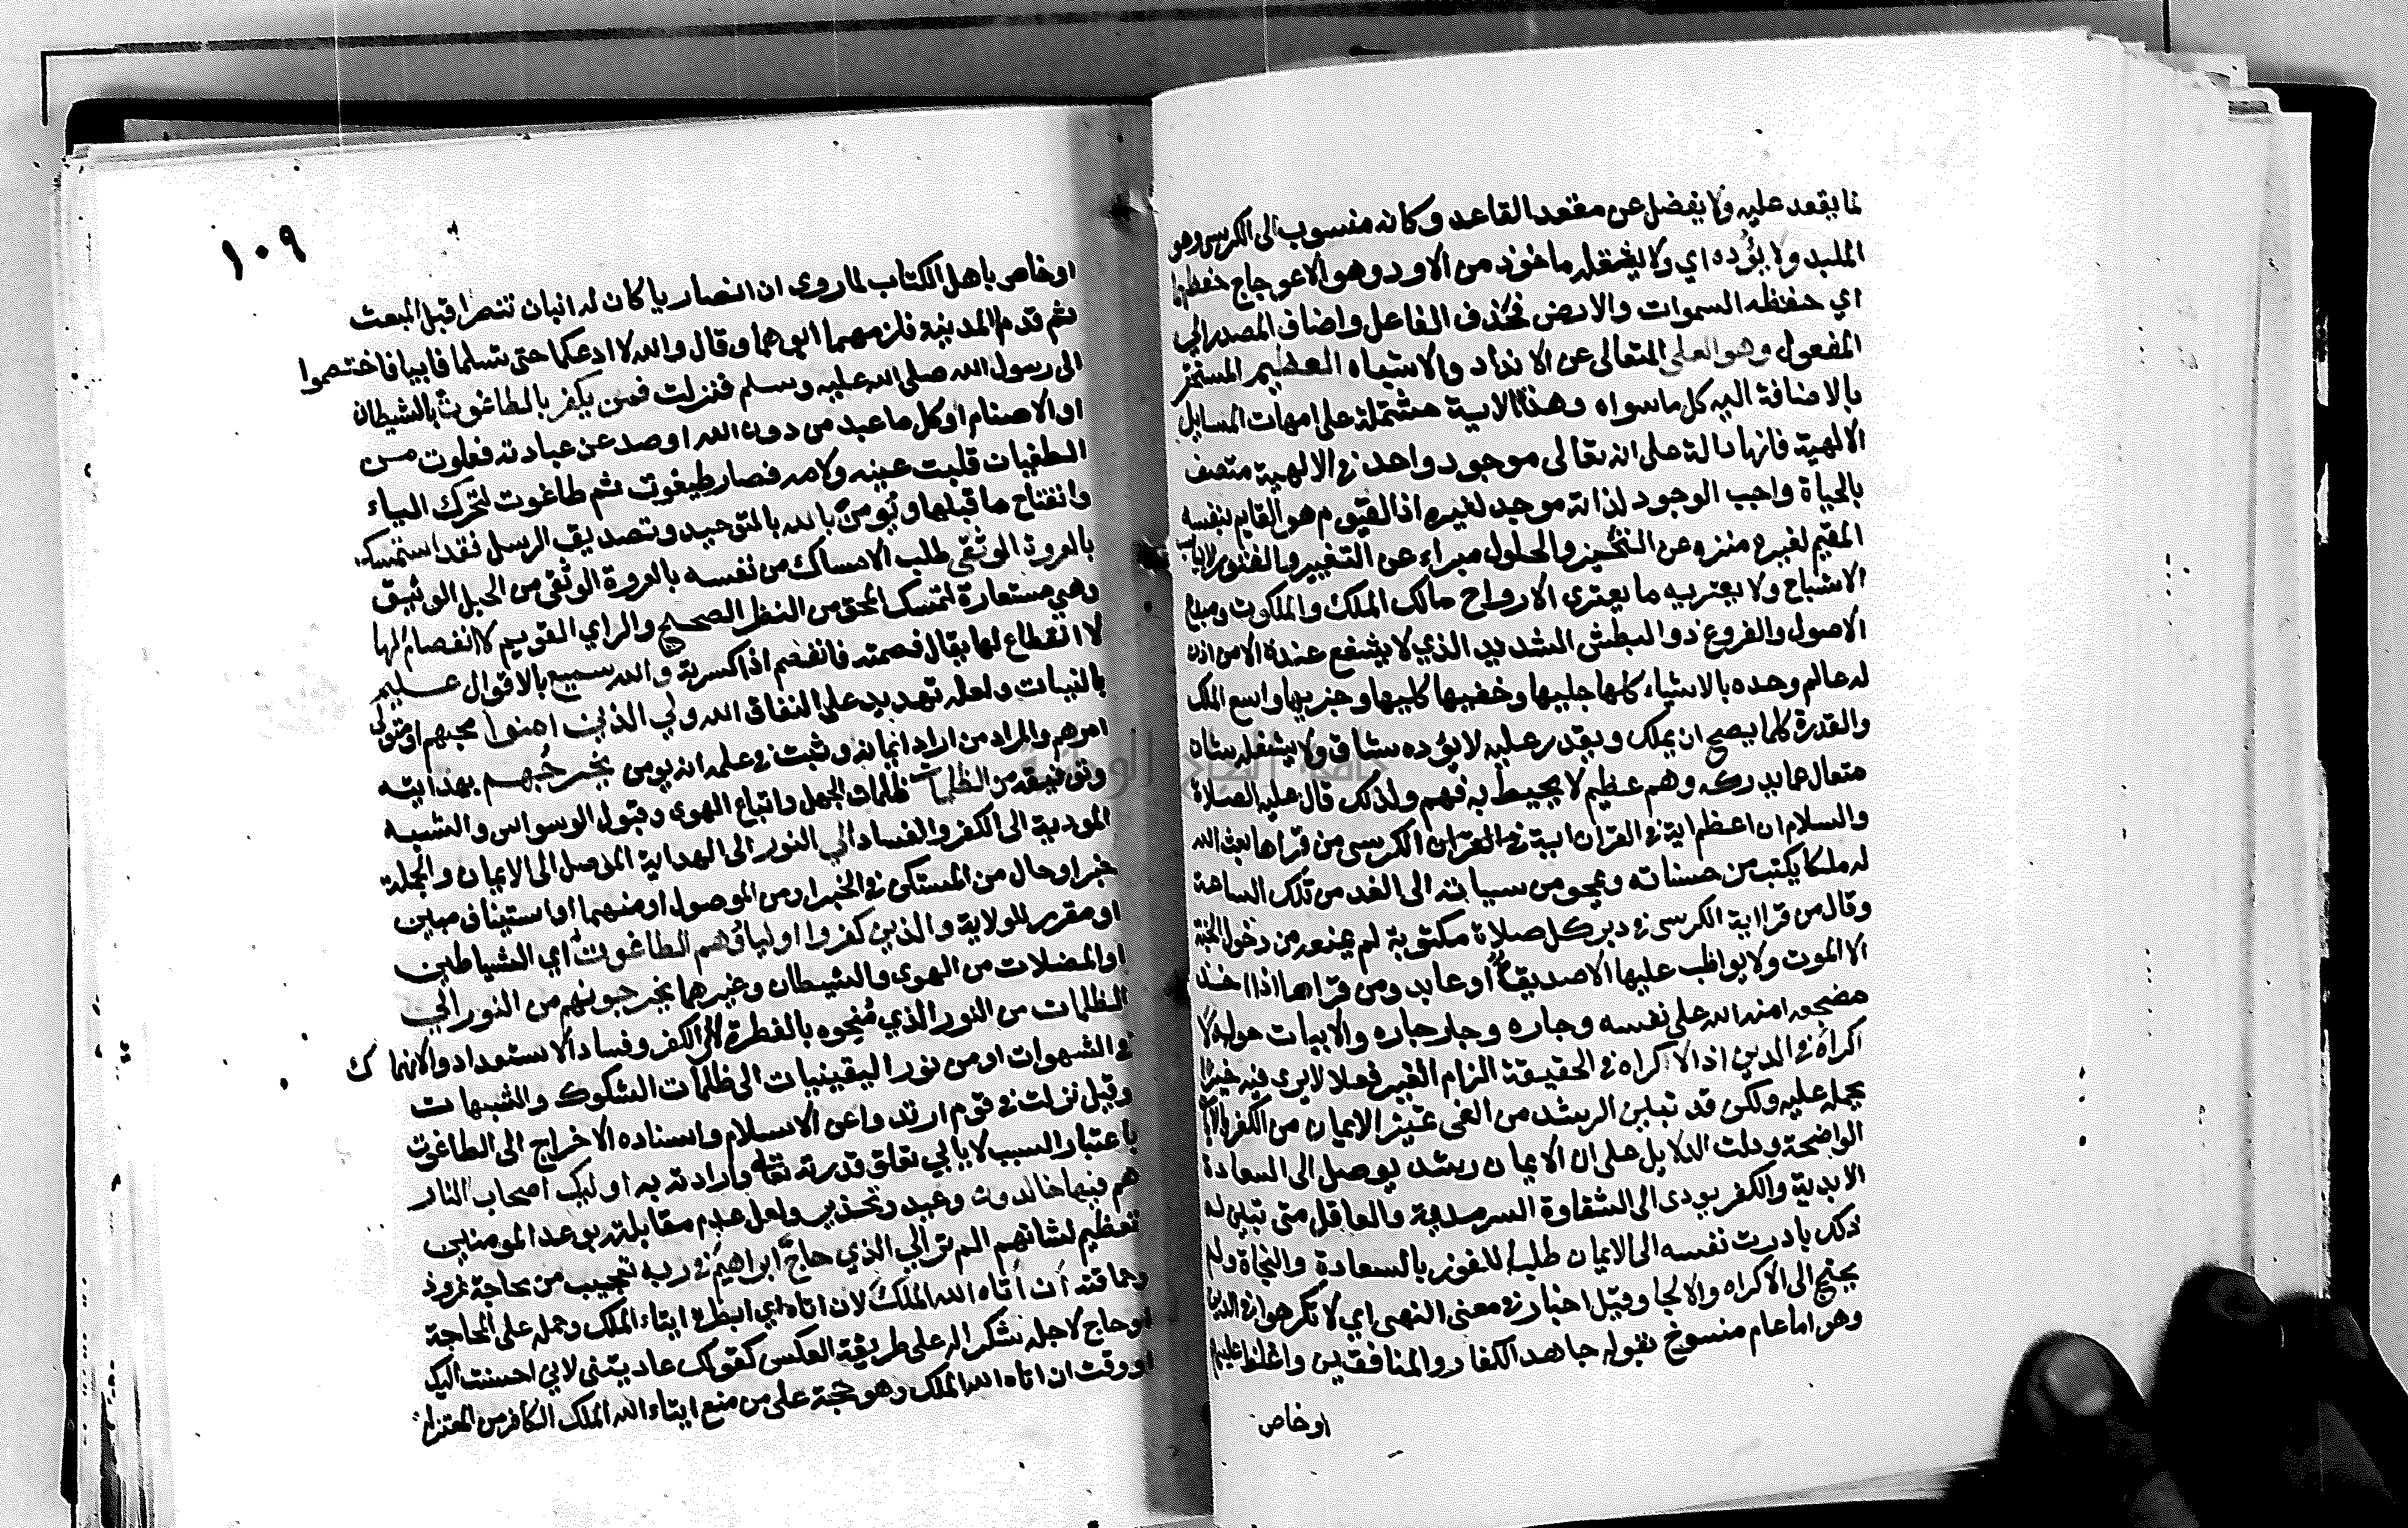 لما يقعد عليه ولا يفضل عن مقعد القاعد وكانه منسوب الى الكرسي وهو
الملبد ولا يؤده اي ولا يثقله ماخوذ من الاود وهو الاعوجاج حفظهما
اي حفظه السموات والارض فحذف الفاعل واضاف المصدر الى
المفعول وهو العلى المتعالى عن الانداد والاشباه العظيم المستحقر
بالاضافة اليه كل ما سواه وهذه الاية مشتملة على امهات المسايل
الالهية فانها دالة على انه تعالى موجود واحد في الالهية متصف
بالحياة واجب الوجود لذاته موجد لغيره اذ القيوم هو القايم بنفسه
المقيم لغيره منزه عن التحيز والحلول مبراء عن التغير والفتور لا يناسب
الاشباح ولا يعتريه ما يعترى الارواح مالك الملك والملكوت ومبدع
الاصول والفروع ذو البطش الشديد الذي لا يشفع عنده الا من اذن
له عالم وحده بالاشياء كلها جليها وخفيها كليها وجزييها واسع الملك
والقدرة كلما يصح ان يملك ويقدر عليه لا يؤده شاق ولا يشغله شان
متعال عما يدركه وهم عظيم لا يحيط به فهم ولذلك قال عليه الصلاة
والسلام ان اعظم اية في القران اية في القران الكرسى من قراها بعث الله
له ملكا يكتب من حسناته ويمحو من سيياته الى الغد من تلك الساعة
وقال من قرا اية الكرسى في دبر كل صلاة مكتوبة لم يمنعه من دخول الجنة
الا الموت ولا يواظب عليها الا صديق او عابد ومن قراها اذا اخذ
مضجعه امنه الله على نفسه وجاره وجار جاره والابيات حوله لا
اكراه في الدين اذ الاكراه في الحقيقة الزام الغير فعلا لا يرى فيه خيرا
يحمله عليه ولكن قد تبين الرشد من الغى تميز الايمان من الكفر بالايات
الواضحة ودلت الدلايل على ان الايمان رشد يوصل الى السعادة
الابدية والكفر يودى الى الشقاوة السرمدية والعاقل متى تبين له
ذلك بادرت نفسه الى الايمان طلبا للفوز بالسعادة والنجاة ولم
يحتج الى الاكراه والالجا وقيل اخبار في معنى النهى اي لا تكرهوا في الدين
وهو اما عام منسوخ بقوله جاهد الكفار والمنافقين واغلظ عليهم
او خاص
١٠٩
او خاص باهل الكتاب لما روى ان انصاريا كان له ابنان تنصرا قبل المبعث
ثم قدم المدينة فلزمهما ابوهما وقال والله لا ادعكما حتى تسلما فابيا فاختصموا
الى رسول الله صلى الله عليه وسلم فنزلت فمن يكفر بالطاغوت بالشيطان
او الاصنام او كل ما عبد من دون الله او صد عن عبادته فعلوت من
الطغيان قلبت عينه ولامه فصار طيغوت ثم طاغوت لتحرك الياء
وانفتاح ما قبلها ويؤمن بالله بالتوحيد وتصديق الرسل فقد استمسك
بالعروة الوثقى طلب الامساك من نفسه بالعروة الوثقى من الحبل الوثيق
وهي مستعارة لتمسك المحق من النظر الصحيح والراي القويم لا انفصام لها
لا انقطاع لها يقال فصمته فانفصم اذا كسرته والله سميع بالاقوال عليم
بالنيات ولعله تهديد على النفاق الله ولي الذين امنوا محبهم او متولى
امرهم والمراد من اراد ايمانه وثبت في علمه انه يومن يخرجهم بهدايته
وتوفيقه من الظلمات ظلمات الجهل واتباع الهوى وقبول الوسواس والشبه
المودية الى الكفر والفساد الى النور الى الهداية الموصل الى الايمان والجملة
خبر او حال من المستكن في الخبر او من الموصول او منهما او استيناف مبين
او مقرر للولاية والذين كفروا اولياؤهم الطاغوت اي الشياطين
او المضلات من الهوى والشيطان وغيرهما يخرجونهم من النور الى
الظلمات من النور الذي منحوه بالفطرة الى الكفر وفساد الاستعداد والانهماك
في الشهوات او من نور اليقينيات الى ظلمات الشكوك والشبهات
وقيل نزلت في قوم ارتدوا عن الاسلام واسناده الاخراج الى الطاغوت
باعتبار السبب لا يابى تعلق قدرته تعالى وارادته به اوليك اصحاب النار
هم فيها خالدون وعيد وتحذير ولعل عدم مقابلته بوعد المومنين
تعظيم لشانهم الم تر الى الذي حاج ابراهيم في ربه تعجيب من محاجة نمرود
وحماقته أن أتاه الله الملك لان اتاه اي ابطره ايتاء الملك وحمله على المحاجة
او حاج لاجله شكرا له على طريقة العكس كقولك عاديتنى لاني احسنت اليك
او وقت ان اتاه الله الملك وهو حجة على من منع ايتاء الله الملك الكافر من المعتزلة